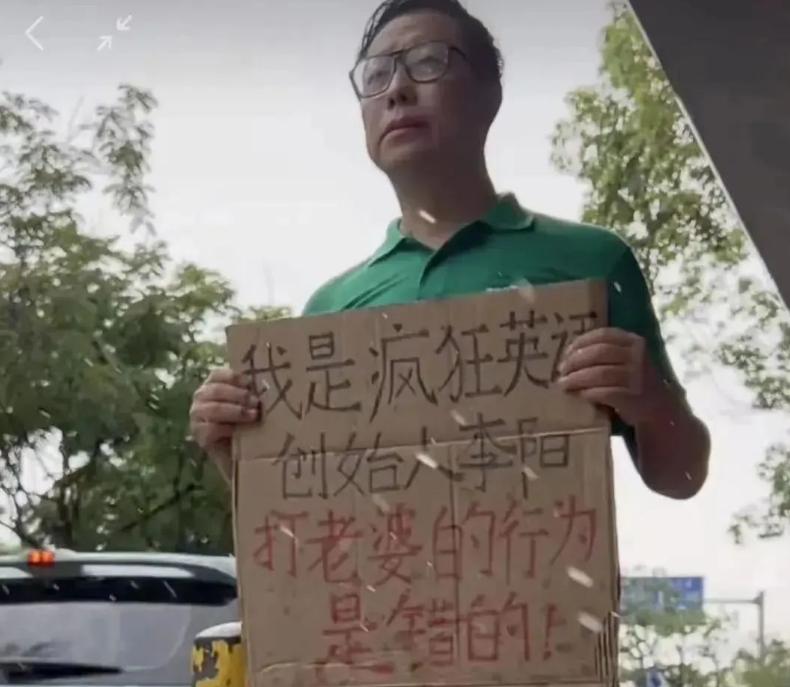 我是疯狂英语
创始人李阳
打老婆的行为
是错的!